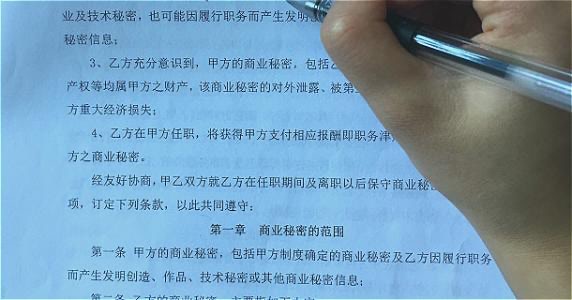 业及技术秘密，也可能因履行职务而产生发明
秘密信息；
3、乙方充分意识到，甲方的商业秘密，包括
产权等均属甲方之财产，该商业秘密的对外泄露、被第
方重大经济损失；
4、乙方在甲方任职，将获得甲方支付相应报酬即职务津
方之商业秘密。
经友好协商，甲乙双方就乙方在任职期间及离职以后保守商业秘
项，订定下列条款，以此共同遵守：
第一章 商业秘密的范围
第一条 甲方的商业秘密，包括甲方制度确定的商业秘密及乙方因履行职务
而产生发明创造、作品、技术秘密或其他商业秘密信息；